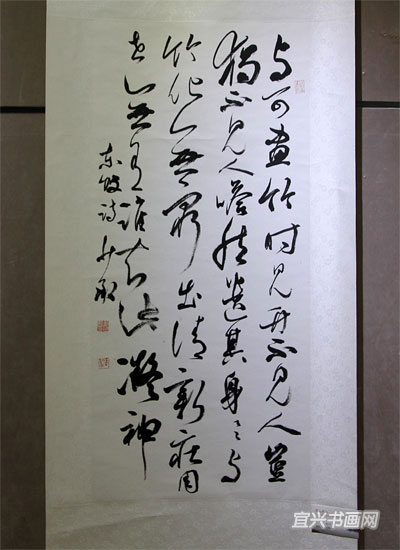 与可画竹时见竹不见人岂
独不见人嗒然遗其身々与
竹化无穷出清新庄周
世无有谁知此凝神
东坡诗
宜兴书画网